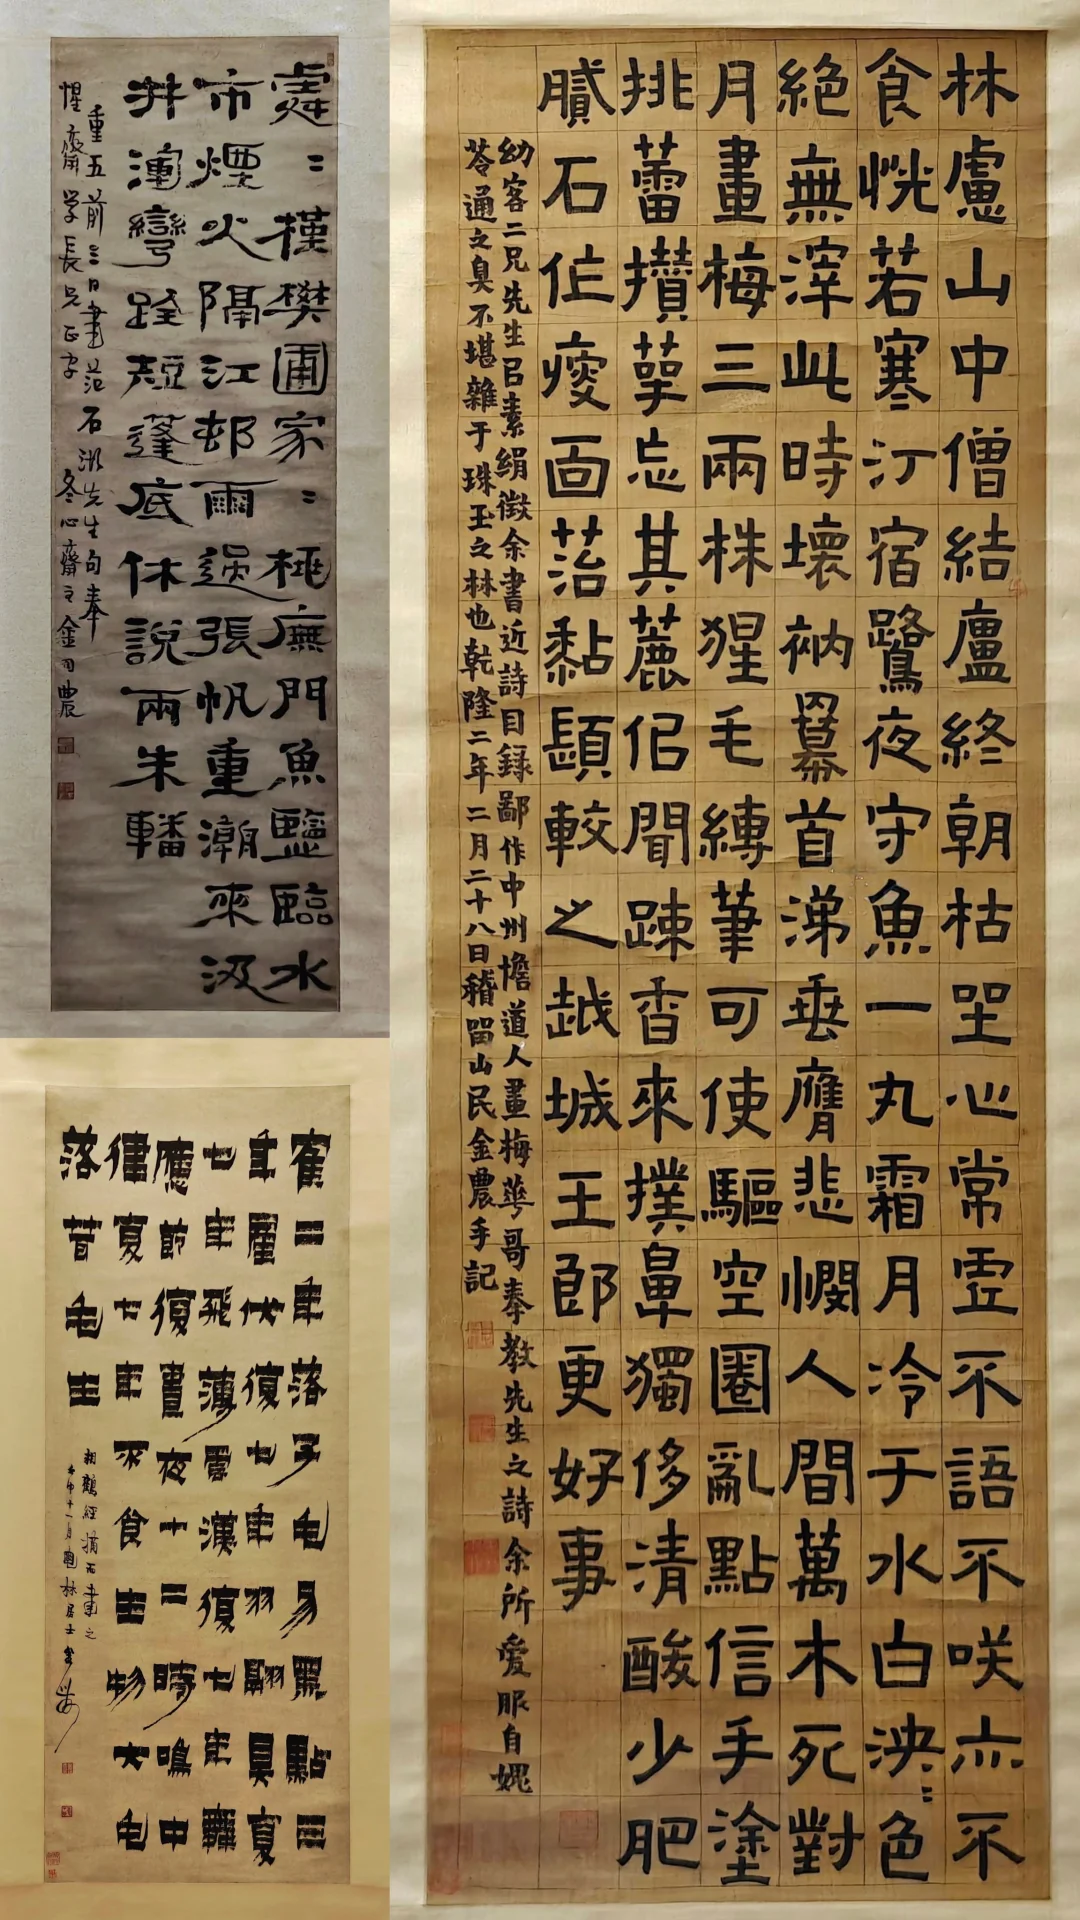 處=槿樊圃家=桃廡門魚鹽臨水
市煙火隔江邨雨過張帆重潮來汲
井渾彎跧短蓬底休說兩朱轓
重五前三日書范石湖先生句奉
惺齋学長兄正字 冬心齋之金司農
林慮山中僧結廬終朝枯坐心常虛不語不咲亦不
食恍若寒汀宿鷺夜守魚一丸霜月冷于水白泱=色
絕無滓此時壞衲冪首涕垂膺悲憫人間萬木死對
月畫梅三兩株猩毛縛筆可使驅空圈亂點信手塗
挑蕾攢萼忘其麤但聞踈香來撲鼻獨侈清酸少肥
膩石作瘦面苔黏鬚較之越城王郎更好事
幼客二兄先生㠯素絹徵余書近詩因録鄙作中州擔道人畫梅華哥奉教先生之詩余所愛服自媿
苓通之臭不堪雜于珠玉之林也乾隆二年二月二十八日稽留山民金農手記
鶴二年落子毛易黑點三
年產伏復七年羽翮具復
七年飛薄雲漢復七年舞
應節復晝夜十二時鳴中
律復七年不食生物大毛
落茸毛生
相鶴經摘而書之
十一月林居士